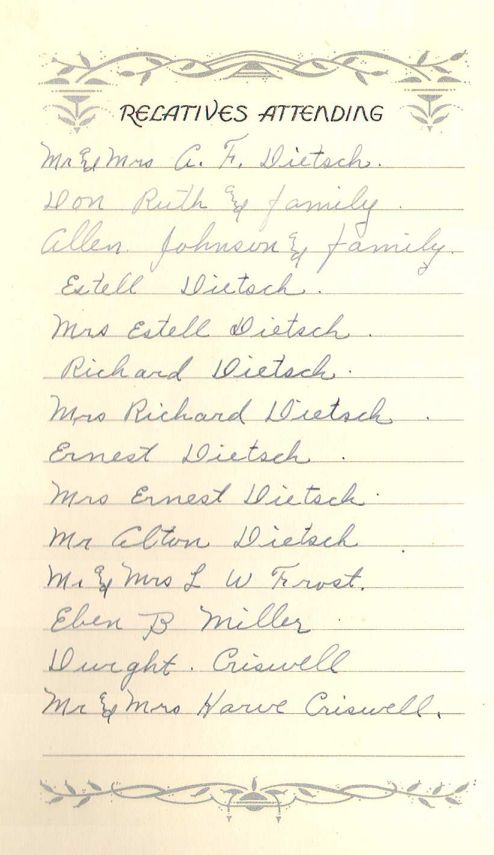 RELATIVES ATTENDING
Mr & Mrs A. F. Dietsch.
Don Ruth & family.
Allen Johnson & family.
Estell Dietsch.
Mrs Estell Dietsch.
Richard Dietsch.
Mrs Richard Dietsch.
Ernest Dietsch.
Mrs Ernest Dietsch.
Mr Alton Dietsch
Mr & Mrs L W Frost.
Eben B Miller
Dwight. Criswell
Mr & Mrs Harve Criswell.